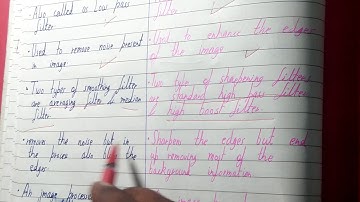 · Also called as Low pass
filter
filter
· Used to remove noise present
in image
· Used to enhance the edges
of the image
· Two types of smoothing filter
are averaging filter & median
filter
· Two type of sharpening filters
standard high pass filter
high boost filter
remove the noise but in
the process also blur the
edges
· Sharpen the edges but end
up removing most of the
background information
· An image